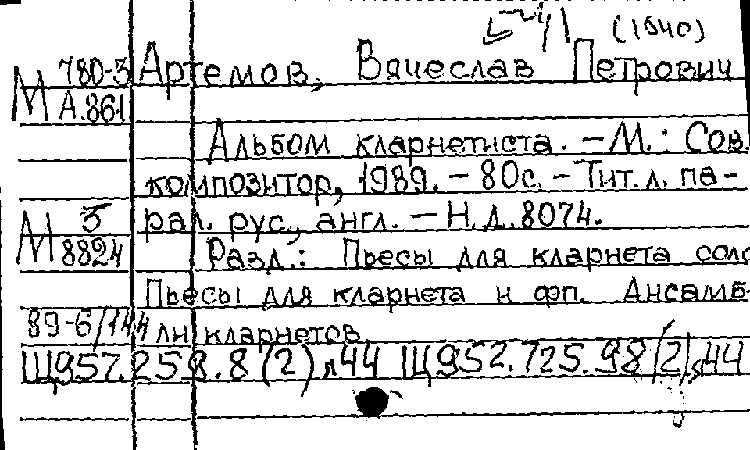 (1940)
М 780-5 Артемов, Вячеслав Петрович
А.861
Альбом кларнетиста. – М.: Сов.
композитор, 1989. – 80с. – Тит. л. па-
М 5 рал. рус., англ. – Н.д.8074.
8824 Разд.: Пьесы для кларнета соло
Пьесы для кларнета и фп. Ансамб-
89-6/144 ли кларнетов
Щ957.258.8(2)я44 Щ952.725.98(2)я44